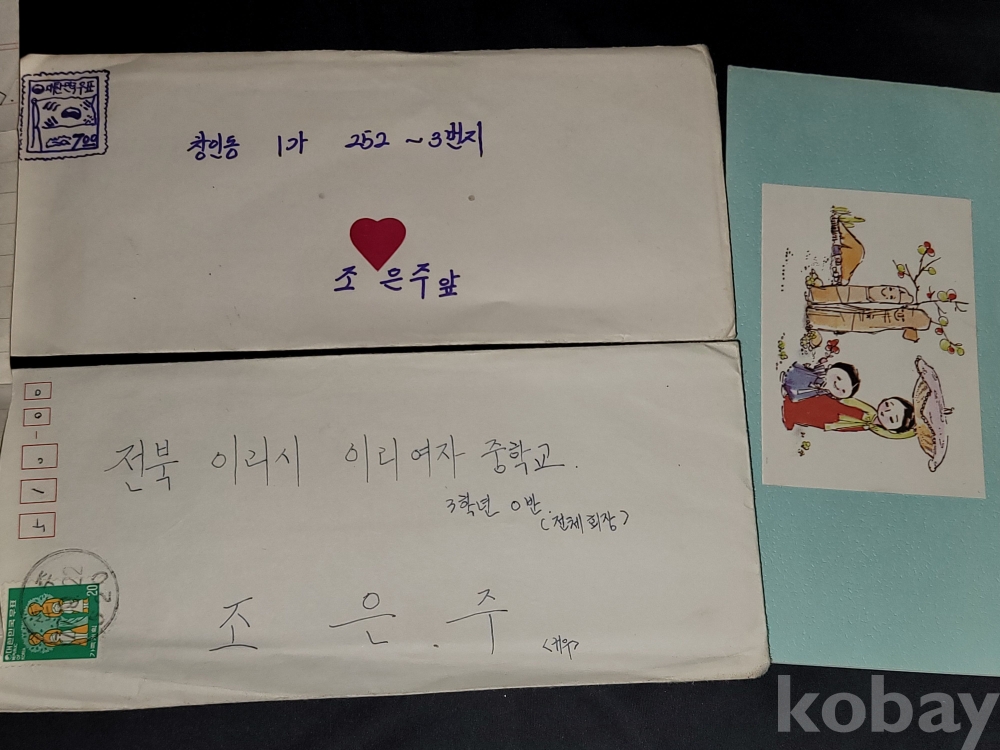 대한민국우표
700
창인동 1가 252 ~ 3번지
조 은주 앞
전북 이리시 이리여자 중학교.
3학년 0반.
(전체회장)
조 은. 주
대한민국우표
20
가족계획
22
kobay